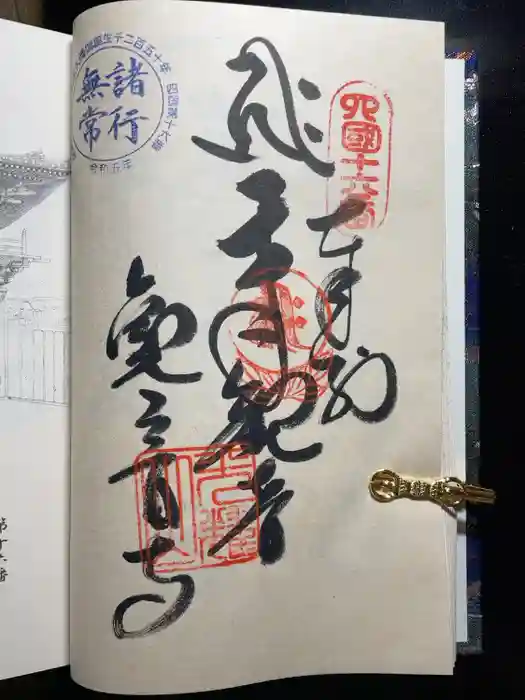 四國十六番
奉納
千手観音
観音寺
光耀山
誕生千二百五十年
四国第十六番
諸行
無常
令和五年
第十六番